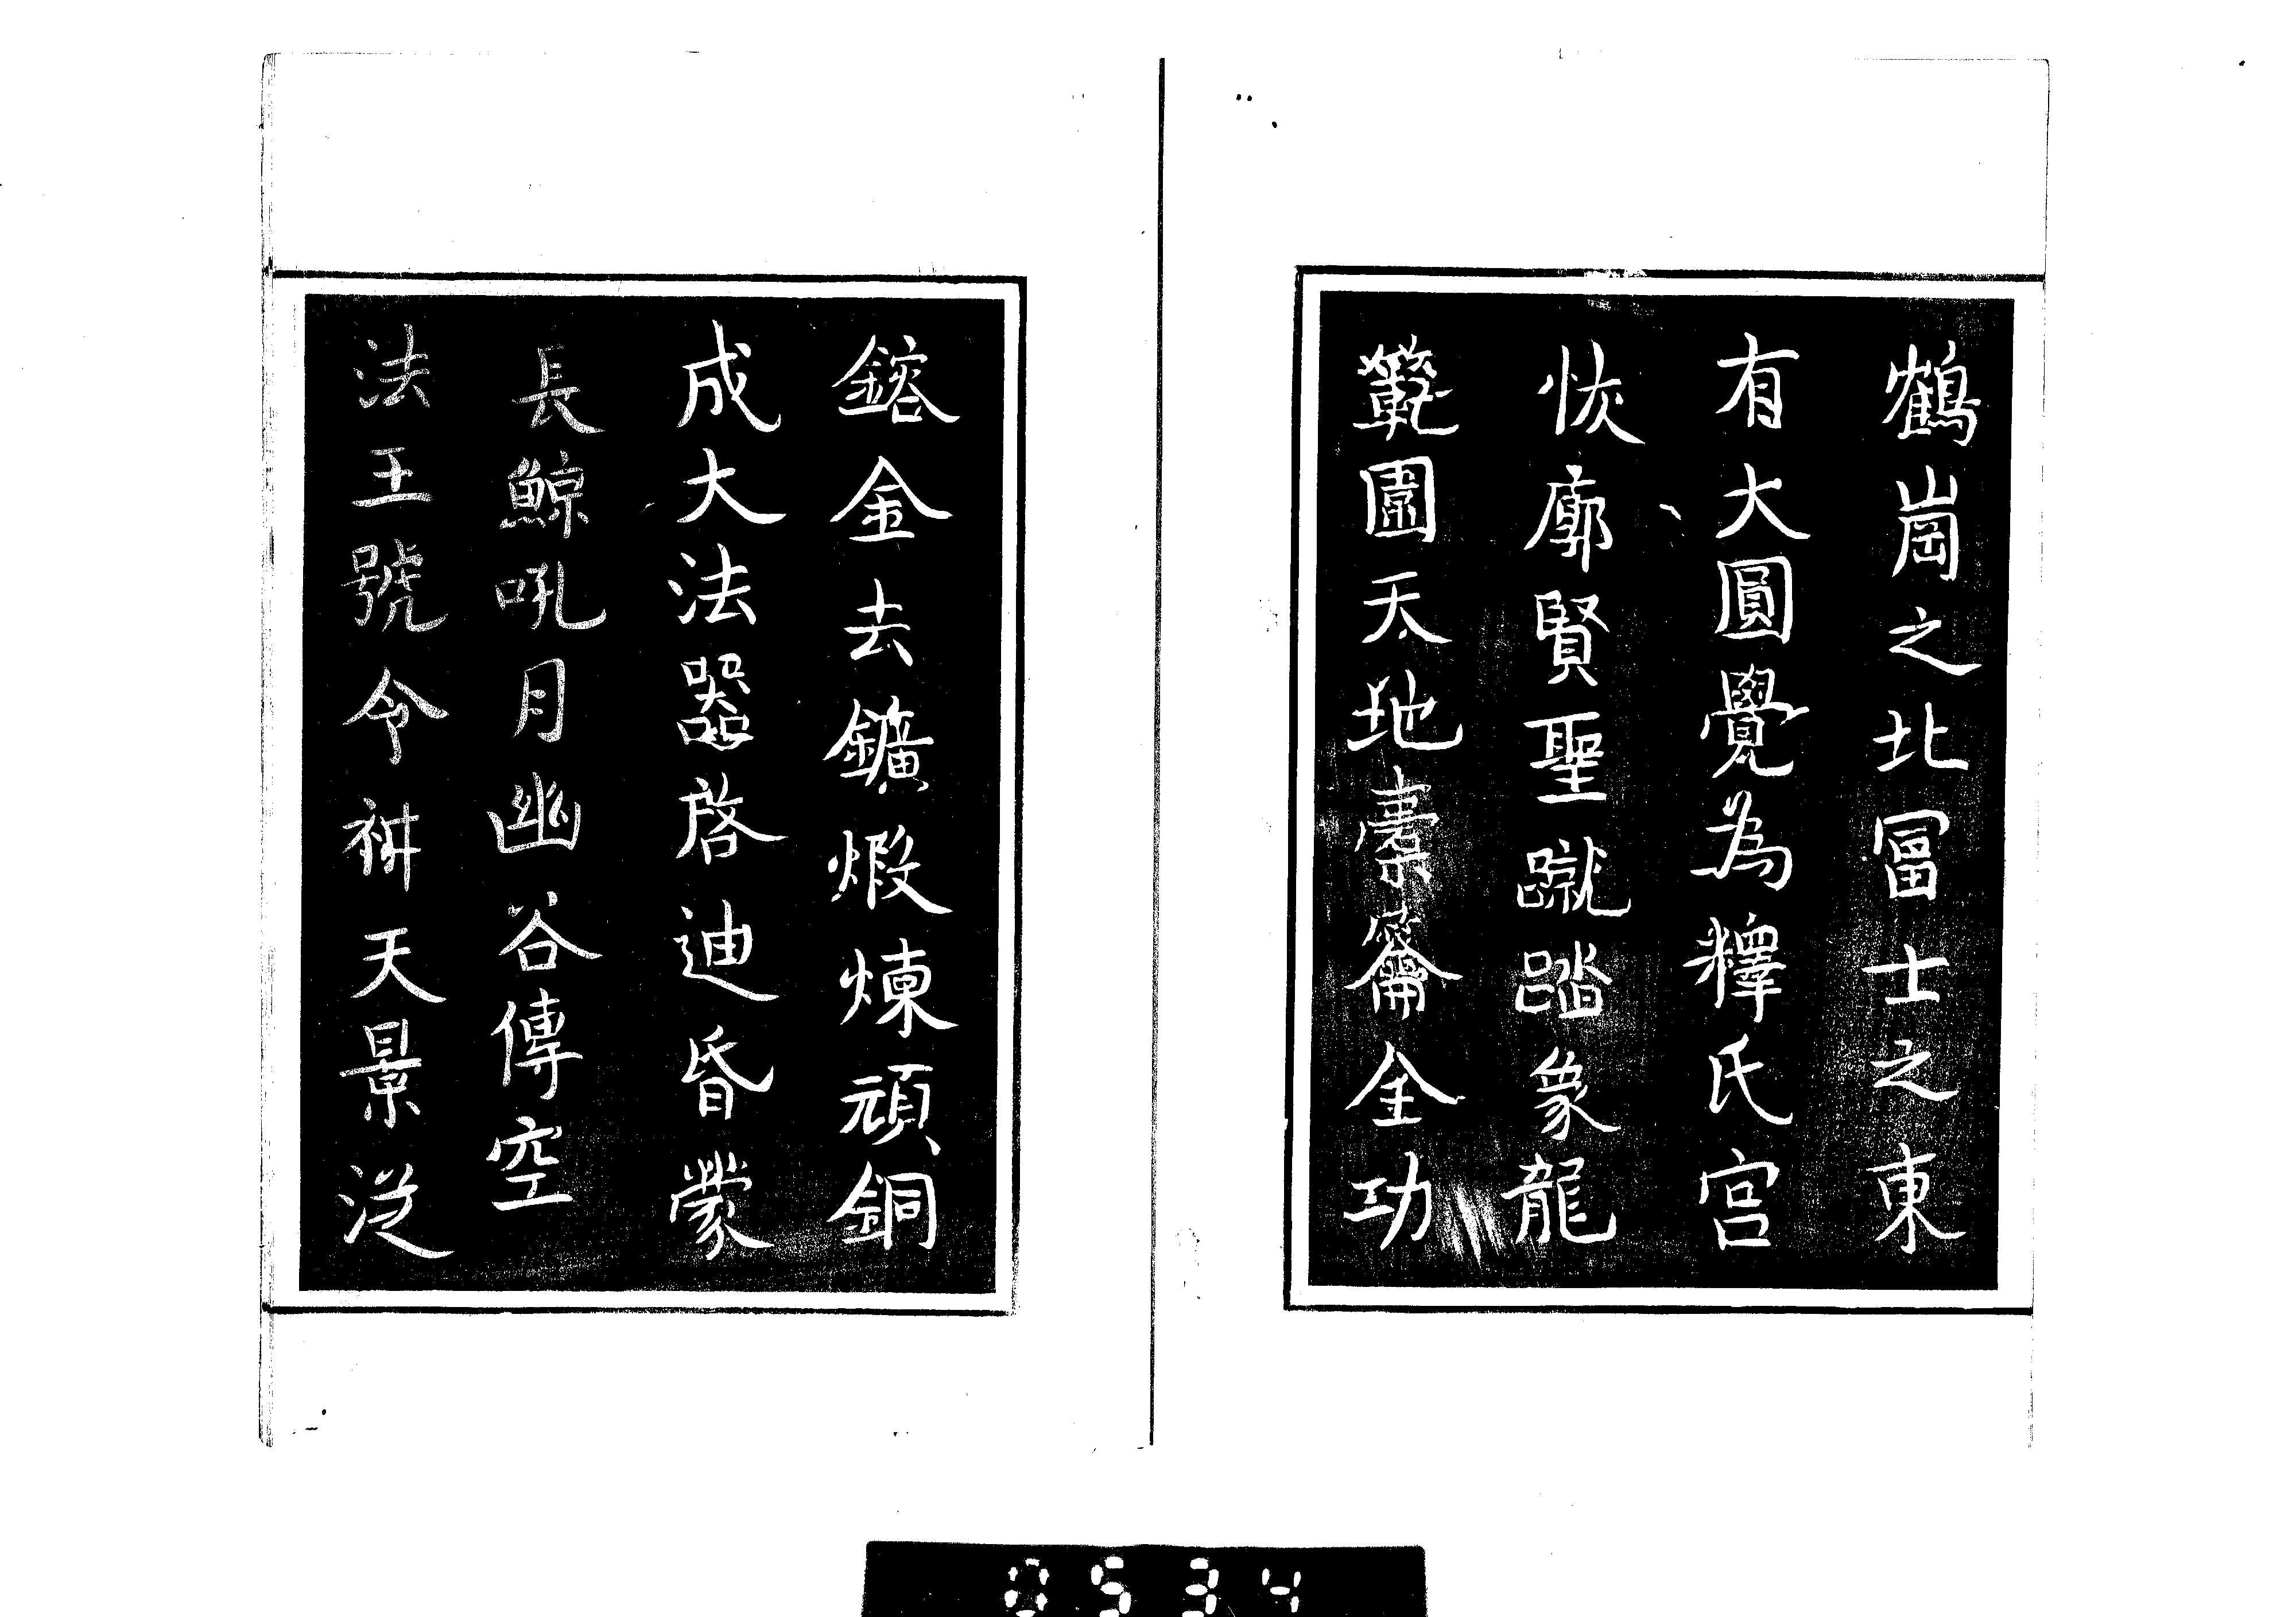 鶴崗之北冨士之東
有大圓覺為釋氏宮
恢廓賢聖蹴踏象龍
範圍天地橐籥全功
鎔金去鑛煅煉頑銅
成大法器啓迪昏蒙
長鯨吼月幽谷傳空
法王號令神天景從
0534